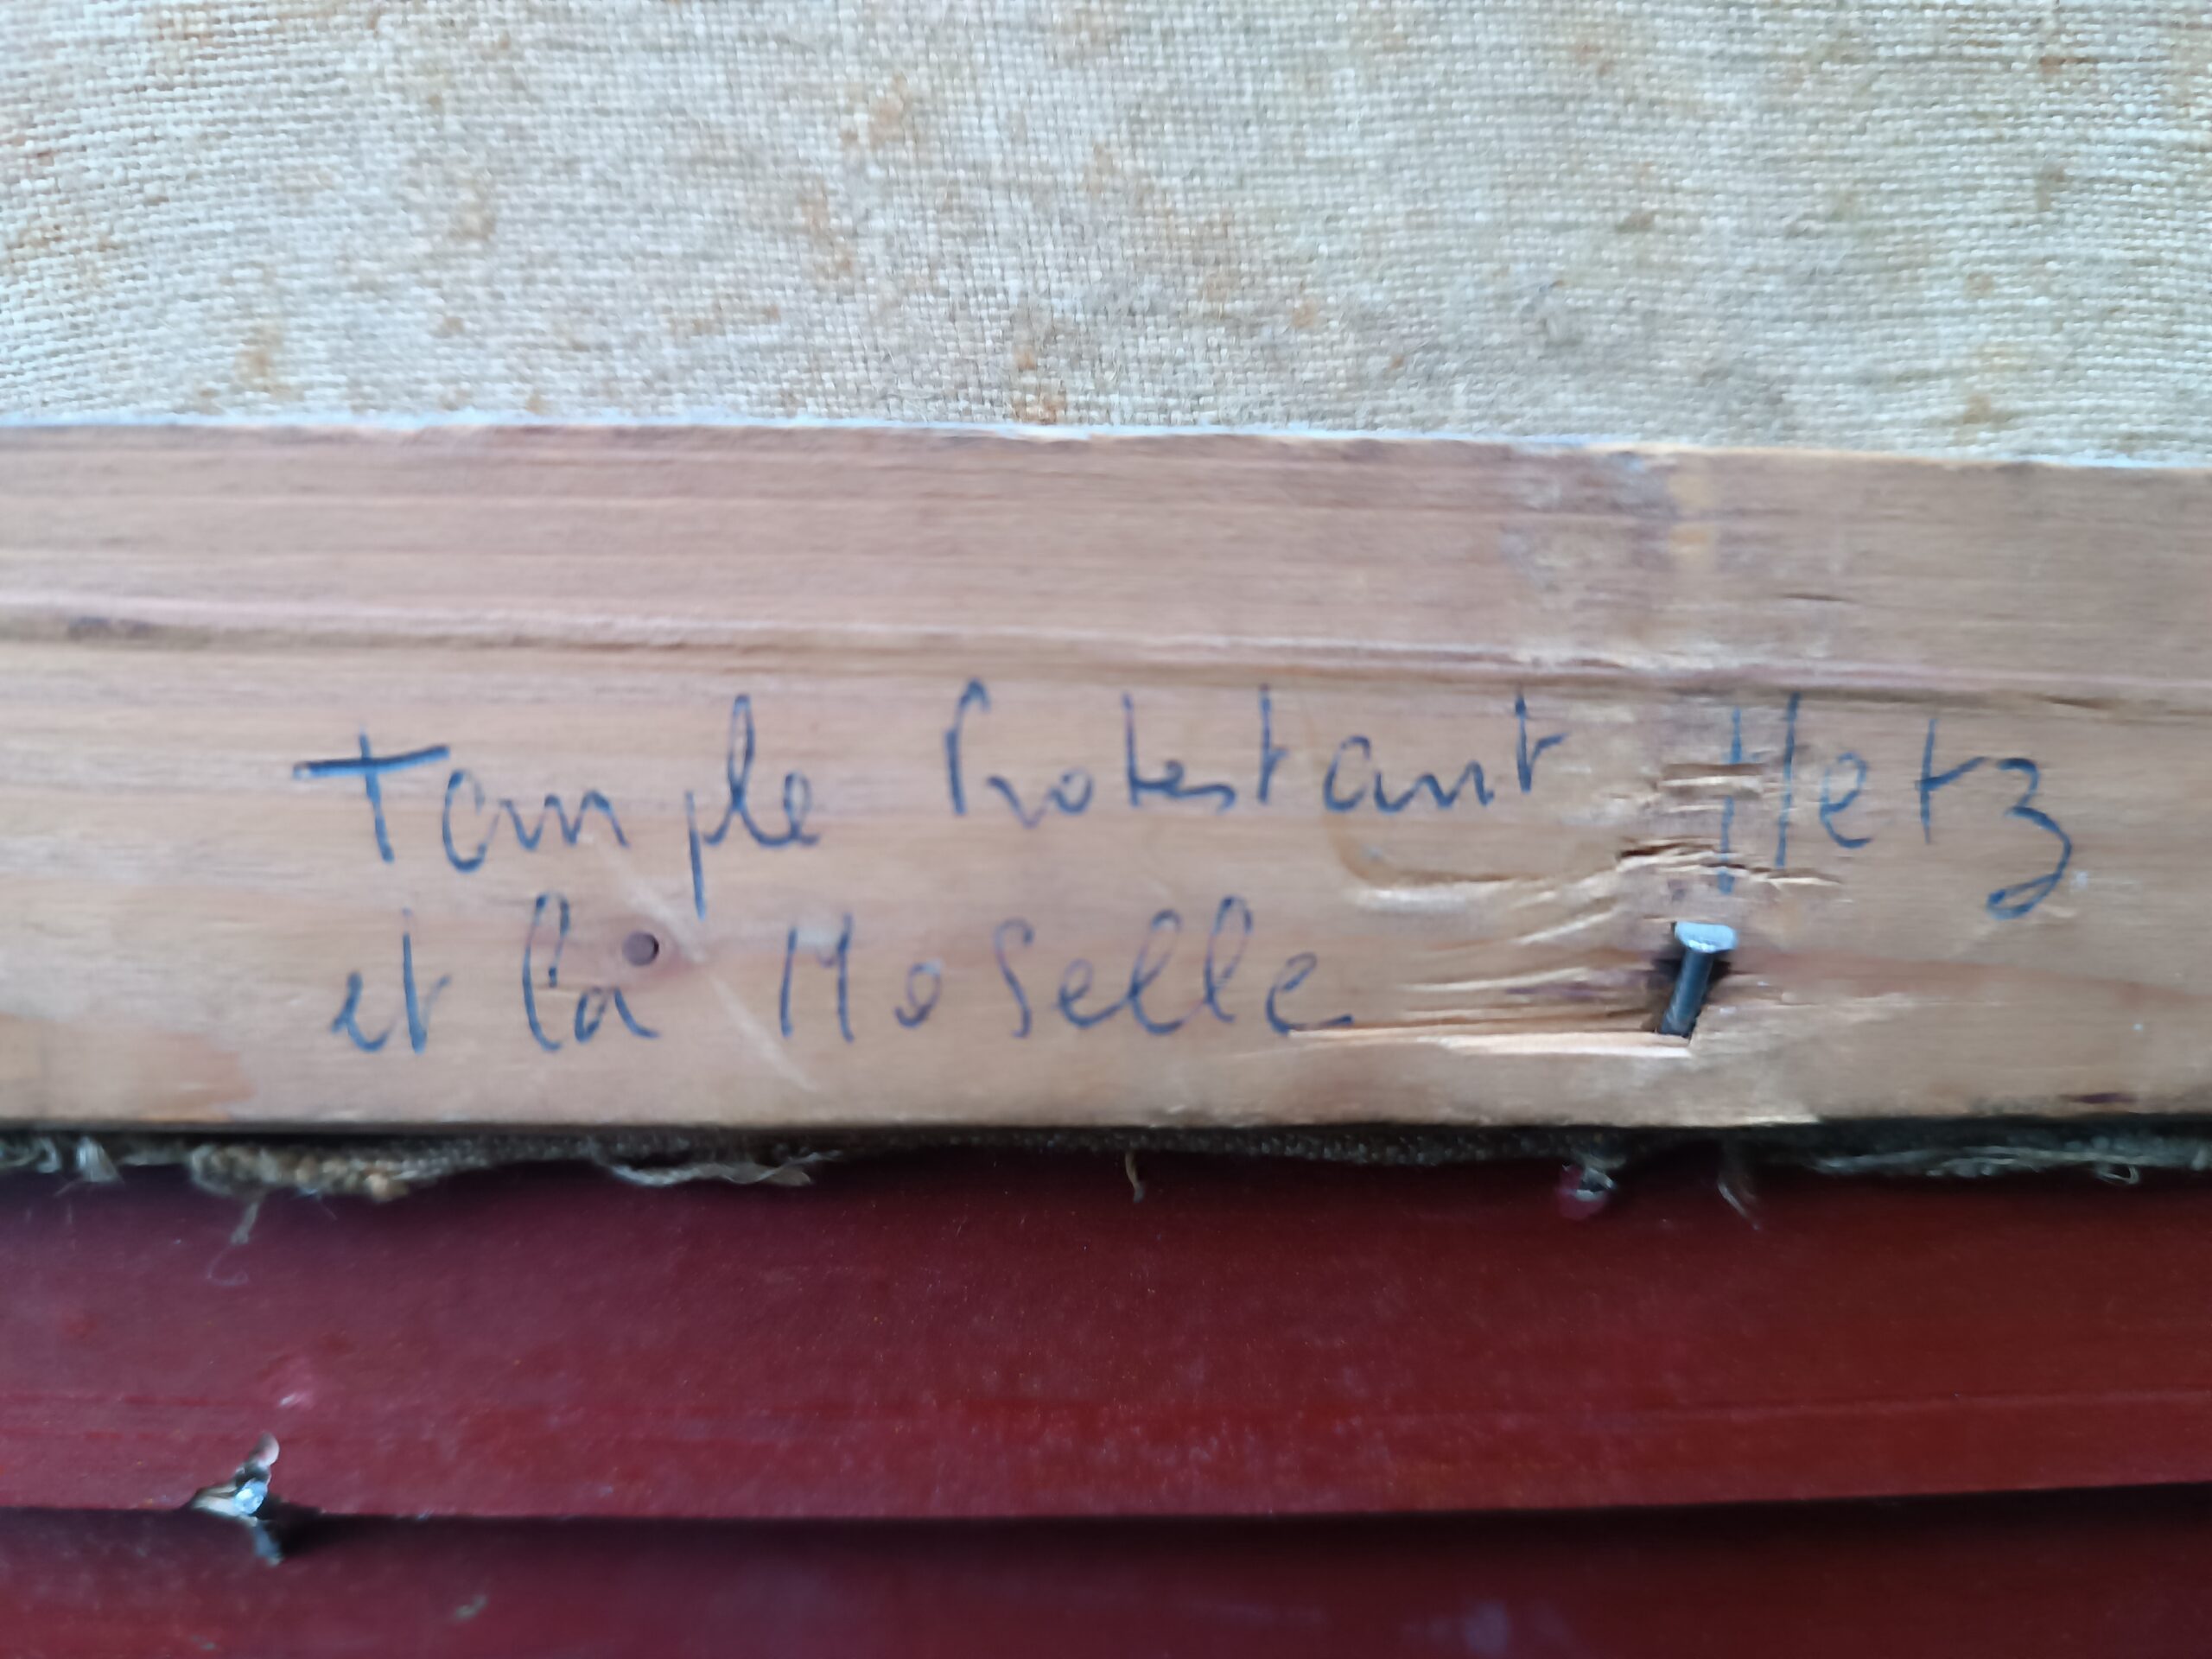 Temple Protestant Metz
et la Moselle